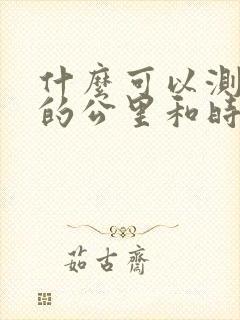 什麼可以測
的公里和時
茹古齋